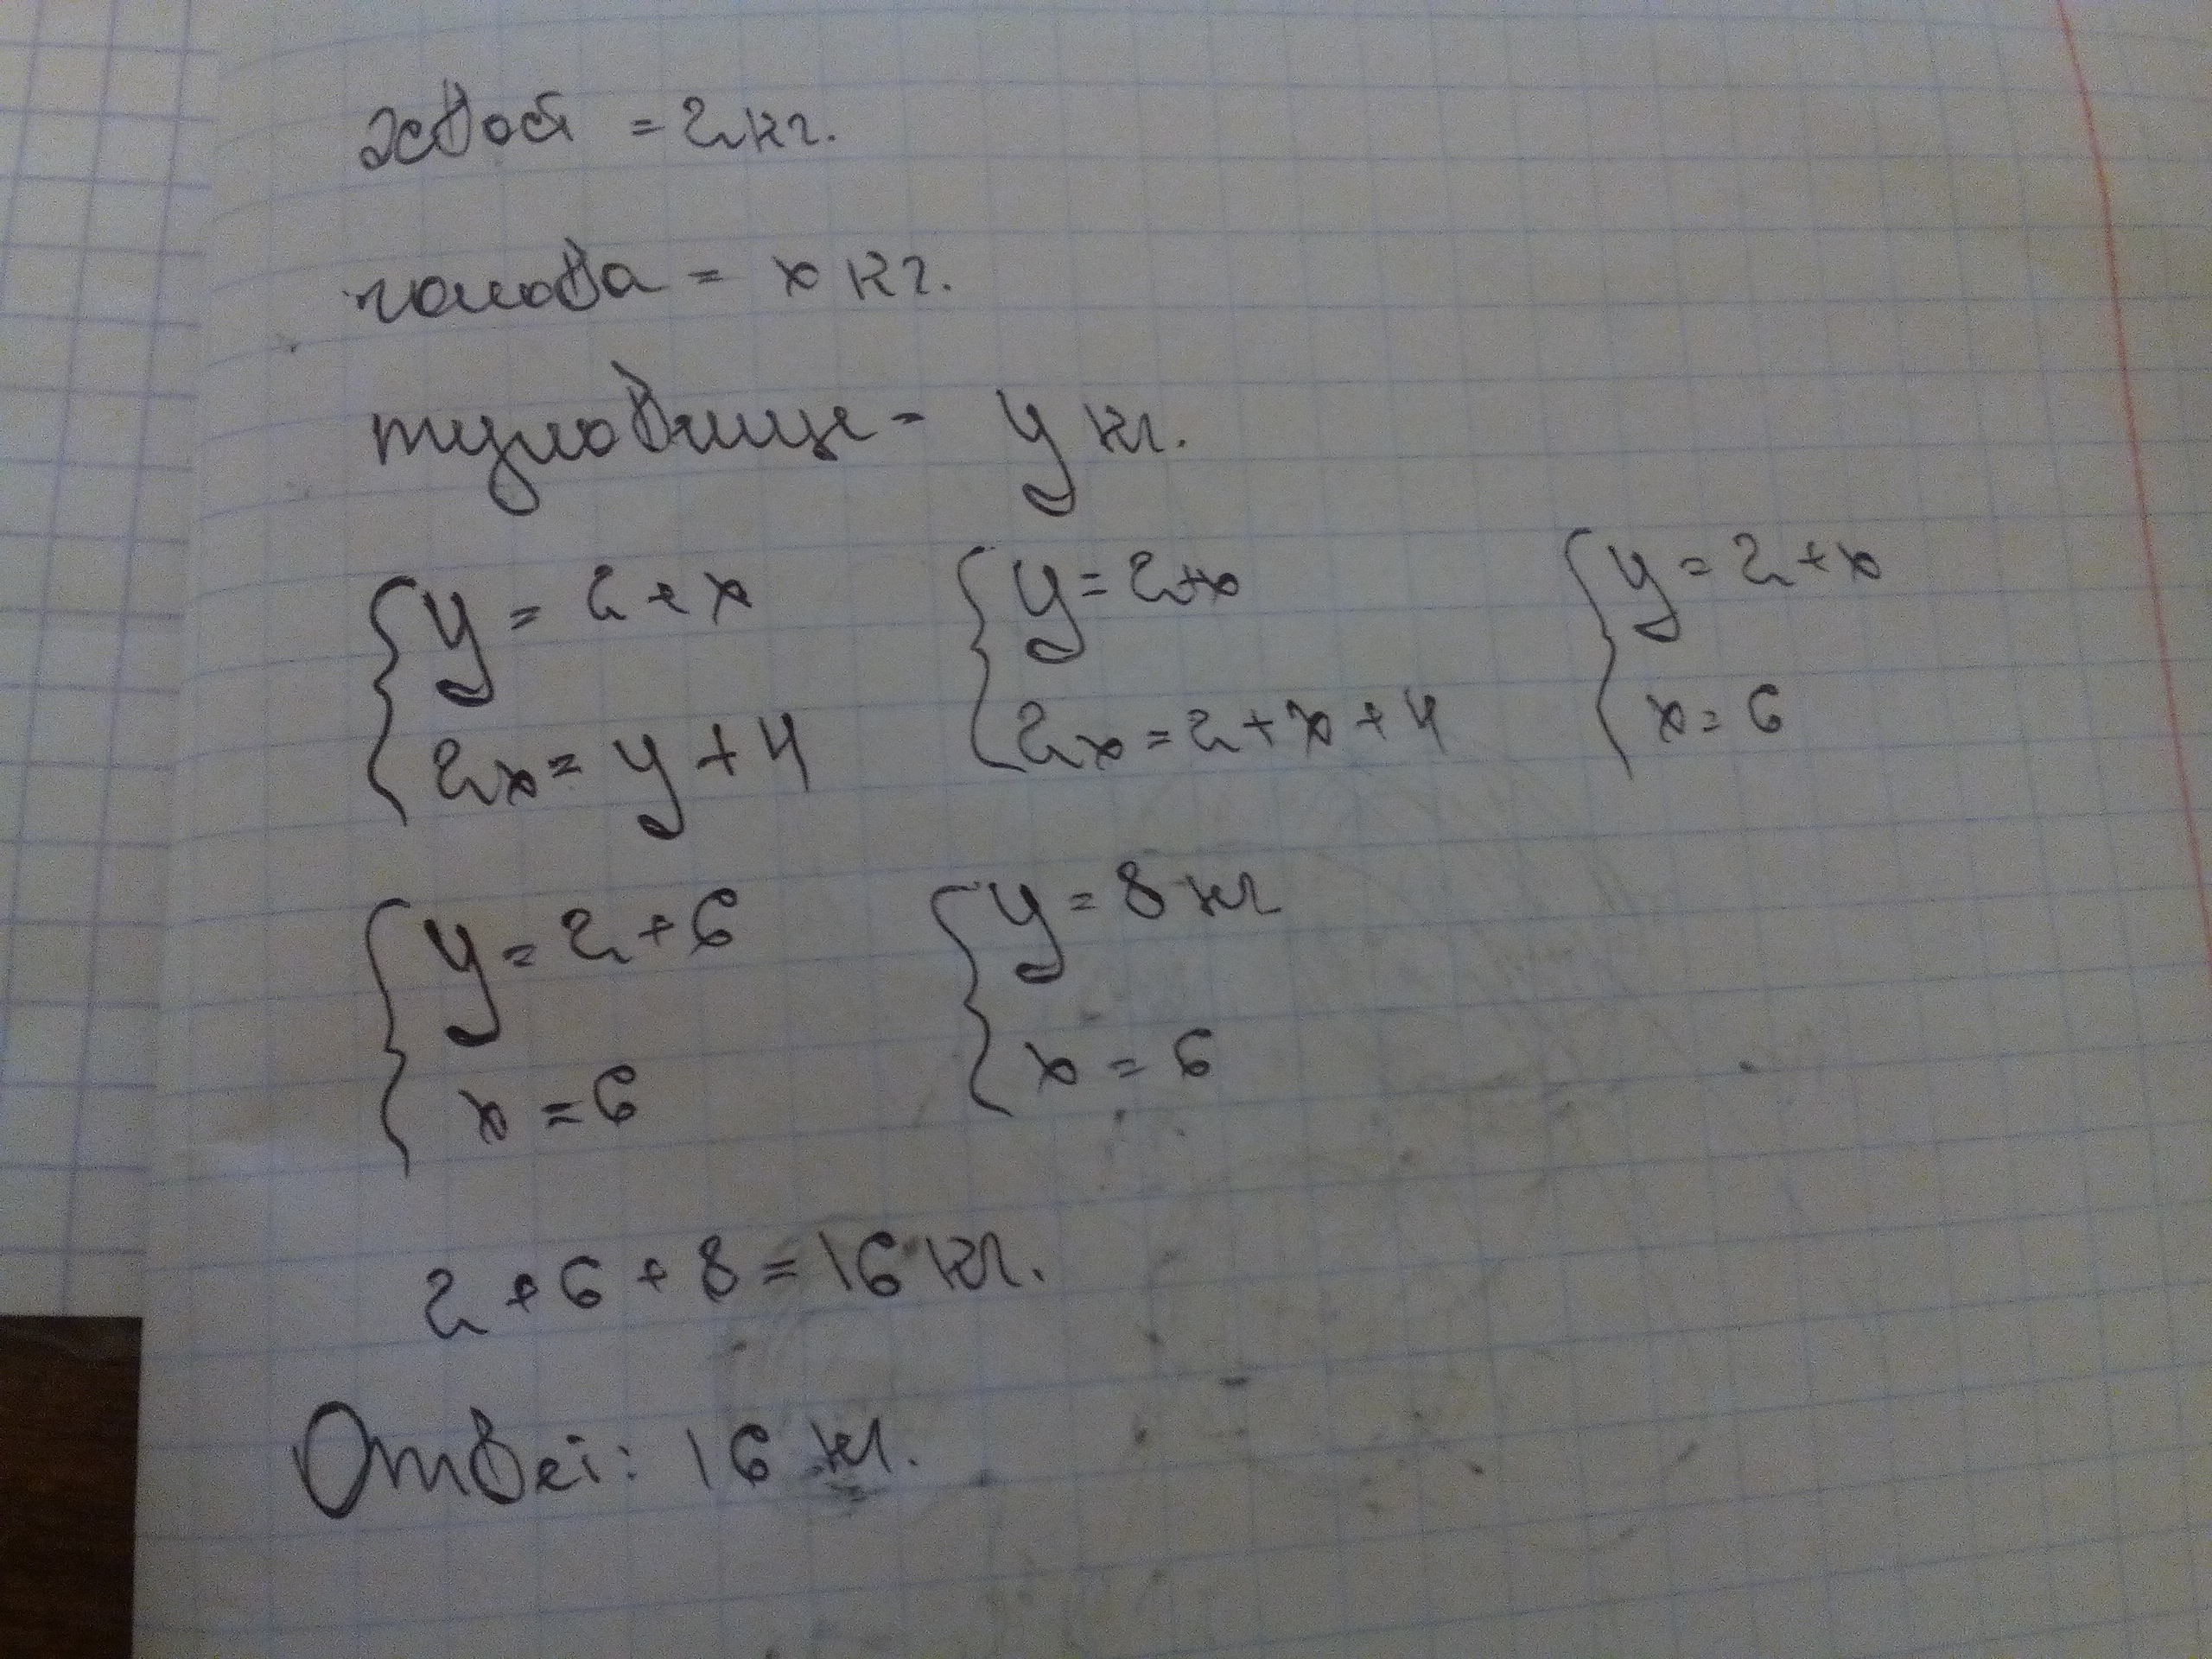 хвост = 2кг.
голова = x кг.
туловище - y кг.
{ y = 2 + x { y = 2+x { y = 2 + x
{ 2x = y + 4 { 2x = 2 + x + 4 { x = 6
{ y = 2 + 6 { y = 8 кг
{ x = 6 { x = 6
2 + 6 + 8 = 16 кг.
Ответ: 16 кг.